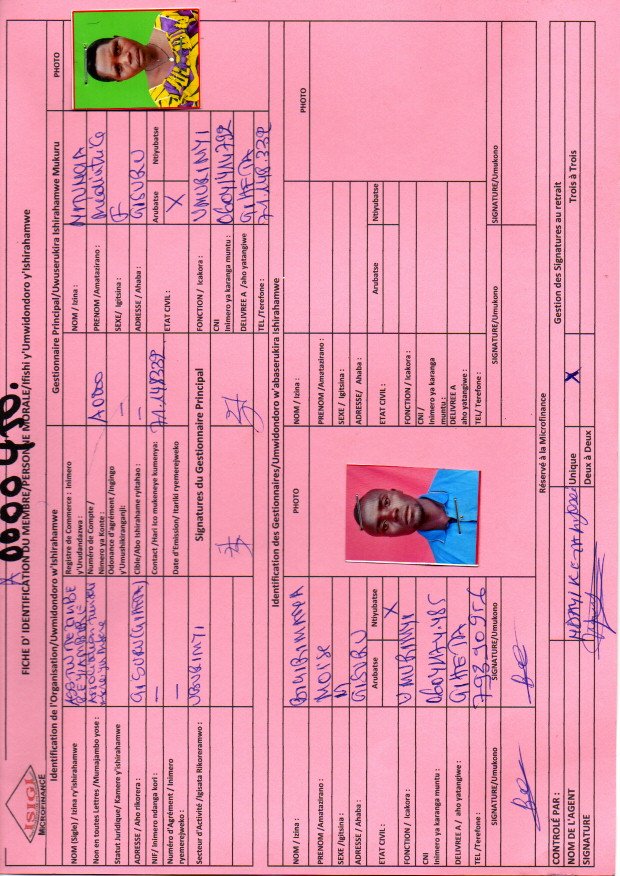 0000410.
ISIGI
MICROFINANCE
FICHE D' IDENTIFICATION DU MEMBRE/PERSONNE MORALE/Ifishi y'Umwidondoro y'Ishirahamwe
Identification de l'Organisation/Uwmidondoro w'Ishirahamwe
NOM (Sigle) / Izina ry'ishirahamwe
Non en toutes Lettres /Mumajambo yose :
Statut juridique/ Kamere y'ishirahamwe
ADRESSE / Aho rikorera : GISURU (GIHETA)
NIF/ Inimero ndanga kori : —
Numéro d'Agrément / Inimero ryemerejweko : —
Secteur d'Activité /Igisata Rikoreramwo : UBURIMYI
Registre de Commerce : Inimero y'Urudandazwa :
Numéro de Compte / Nimero ya Konte : A0000
Odonance d'agrément /Ingingo y'Umushikiranganji: —
Cible/Abo Ishirahame ryitaho : —
Contact /Hari ico mukeneye kumenya: 71148339
Date d'Emission/ Itariki ryemerejweko
Signatures du Gestionnaire Principal
Gestionnaire Principal/Uwuserukira Ishirahamwe Mukuru
PHOTO
NOM / Izina :
PRENOM /Amatazirano : Médiatrice
SEXE/ Igitsina : F
ADRESSE / Ahaba : GISURU
ETAT CIVIL : Arubatse Ntiyubatse
X
FONCTION / Icakora : UMURIMYI
CNI
Inimero ya karanga muntu :
DELIVREE A /aho yatangiwe GIHETA
TEL /Terefone : 71.148.339
Identification des Gestionnaires/Umwidondoro w'abaserukira Ishirahamwe
PHOTO
NOM / Izina :
PRENOM /Amatazirano : MOISE
SEXE /Igitsina : M
ADRESSE / Ahaba : GISURU
ETAT CIVIL : Arubatse Ntiyubatse
X
FONCTION / Icakora : UMURIMYI
CNI
Inimero ya karanga muntu :
DELIVREE A / aho yatangiwe : GIHETA
TEL /Terefone :
SIGNATURE/Umukono SIGNATURE/Umukono
PHOTO
NOM / Izina :
PRENOM /Amatazirano :
SEXE / Igitsina :
ADRESSE/ Ahaba :
ETAT CIVIL : Arubatse Ntiyubatse
FONCTION / Icakora :
CNI /
Inimero ya karanga muntu :
DELIVREE A
aho yatangiwe :
TEL/ Terefone :
SIGNATURE/Umukono SIGNATURE/Umukono
Réservé à la Microfinance
CONTROLÉ PAR :
NOM DE L'AGENT
SIGNATURE
Gestion des Signatures au retrait
Unique X Trois à Trois
Deux à Deux